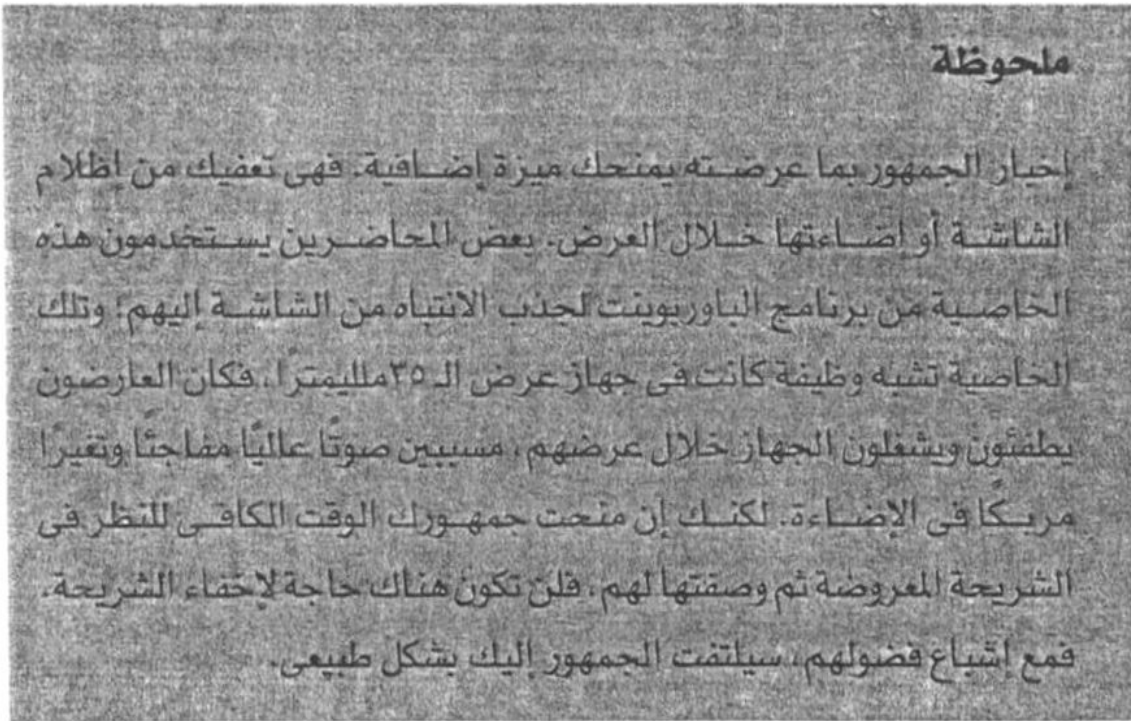 ملحوظة
إخبار الجمهور بما عرضته يمنحك ميزة إضافية. فهى تعفيك من إظلام
الشاشة أو إضاءتها خلال العرض. بعض المحاضرين يستخدمون هذه
الخاصية من برنامج الباوربوينت لجذب الانتباه من الشاشة إليهم؛ وتلك
الخاصية تشبه وظيفة كانت فى جهاز عرض الـ ٣٥ ملليمترًا، فكان العارضون
يطفئون ويشغلون الجهاز خلال عرضهم، مسببين صوتًا عاليًا مفاجئًا وتغيرًا
مربكًا فى الإضاءة. لكنك إن منحت جمهورك الوقت الكافى للنظر فى
الشريحة المعروضة ثم وصفتها لهم، فلن تكون هناك حاجة لإخفاء الشريحة.
فمع إشباع فضولهم، سيلتفت الجمهور إليك بشكل طبيعى.